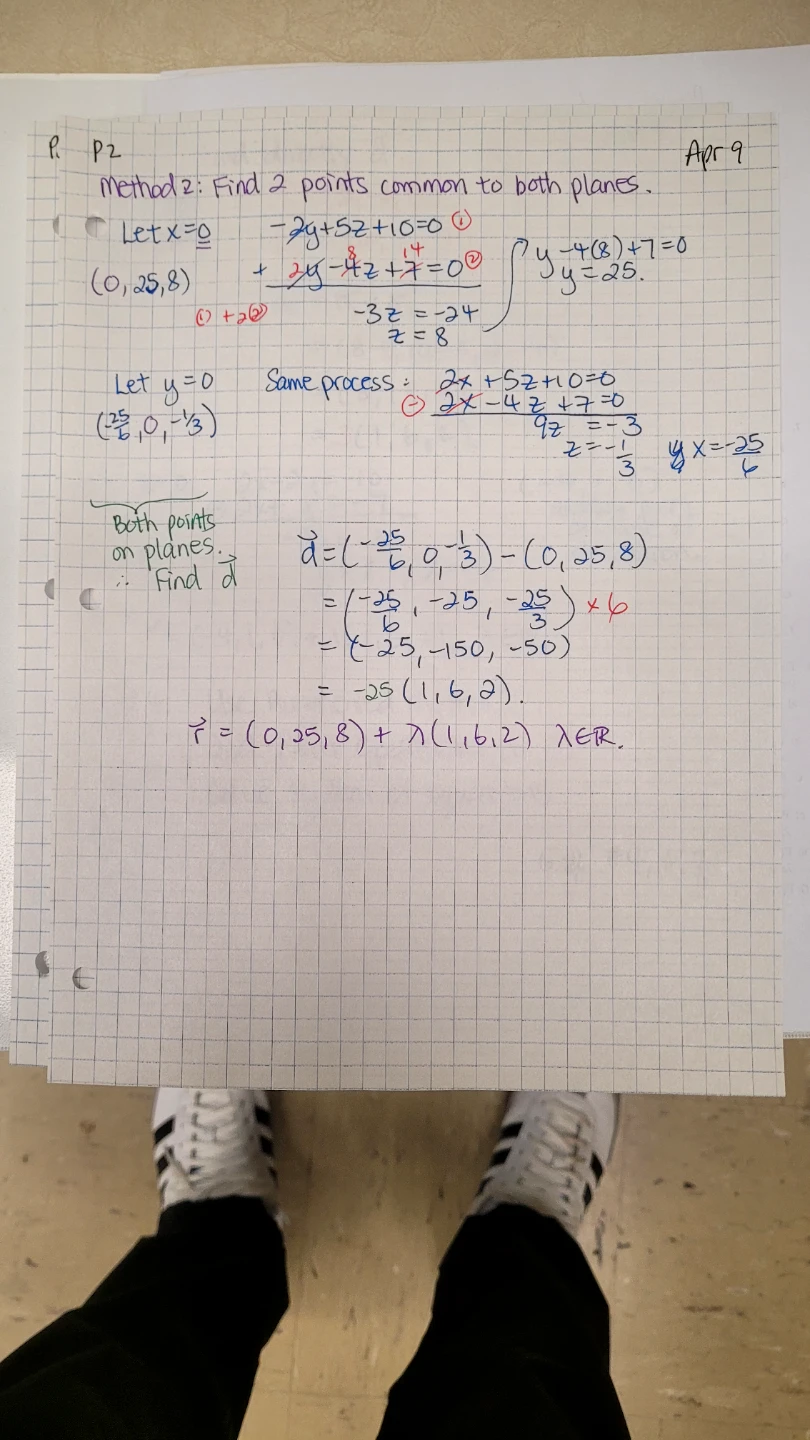 P. P2 Apr 9
Method 2: Find 2 points common to both planes.
Let x=0 -2y+5z+10=0 ①
(0,25,8) + 2y -4z +7=0 ② 8 14 y-4(8)+7=0
y=25.
① +2② -3z = -24
z = 8
Let y=0 Same process: 2x +5z+10=0
(-25/6, 0, -1/3) (-) 2x -4z +7=0
9z = -3
z=-1/3 x=-25/6
Both points
on planes.
∴ Find d⃗
d⃗=(-25/6, 0, -1/3) - (0, 25, 8)
= (-25/6, -25, -25/3) ×6
= (-25, -150, -50)
= -25(1,6,2).
r⃗ = (0,25,8) + λ(1,6,2) λ∈ℝ.